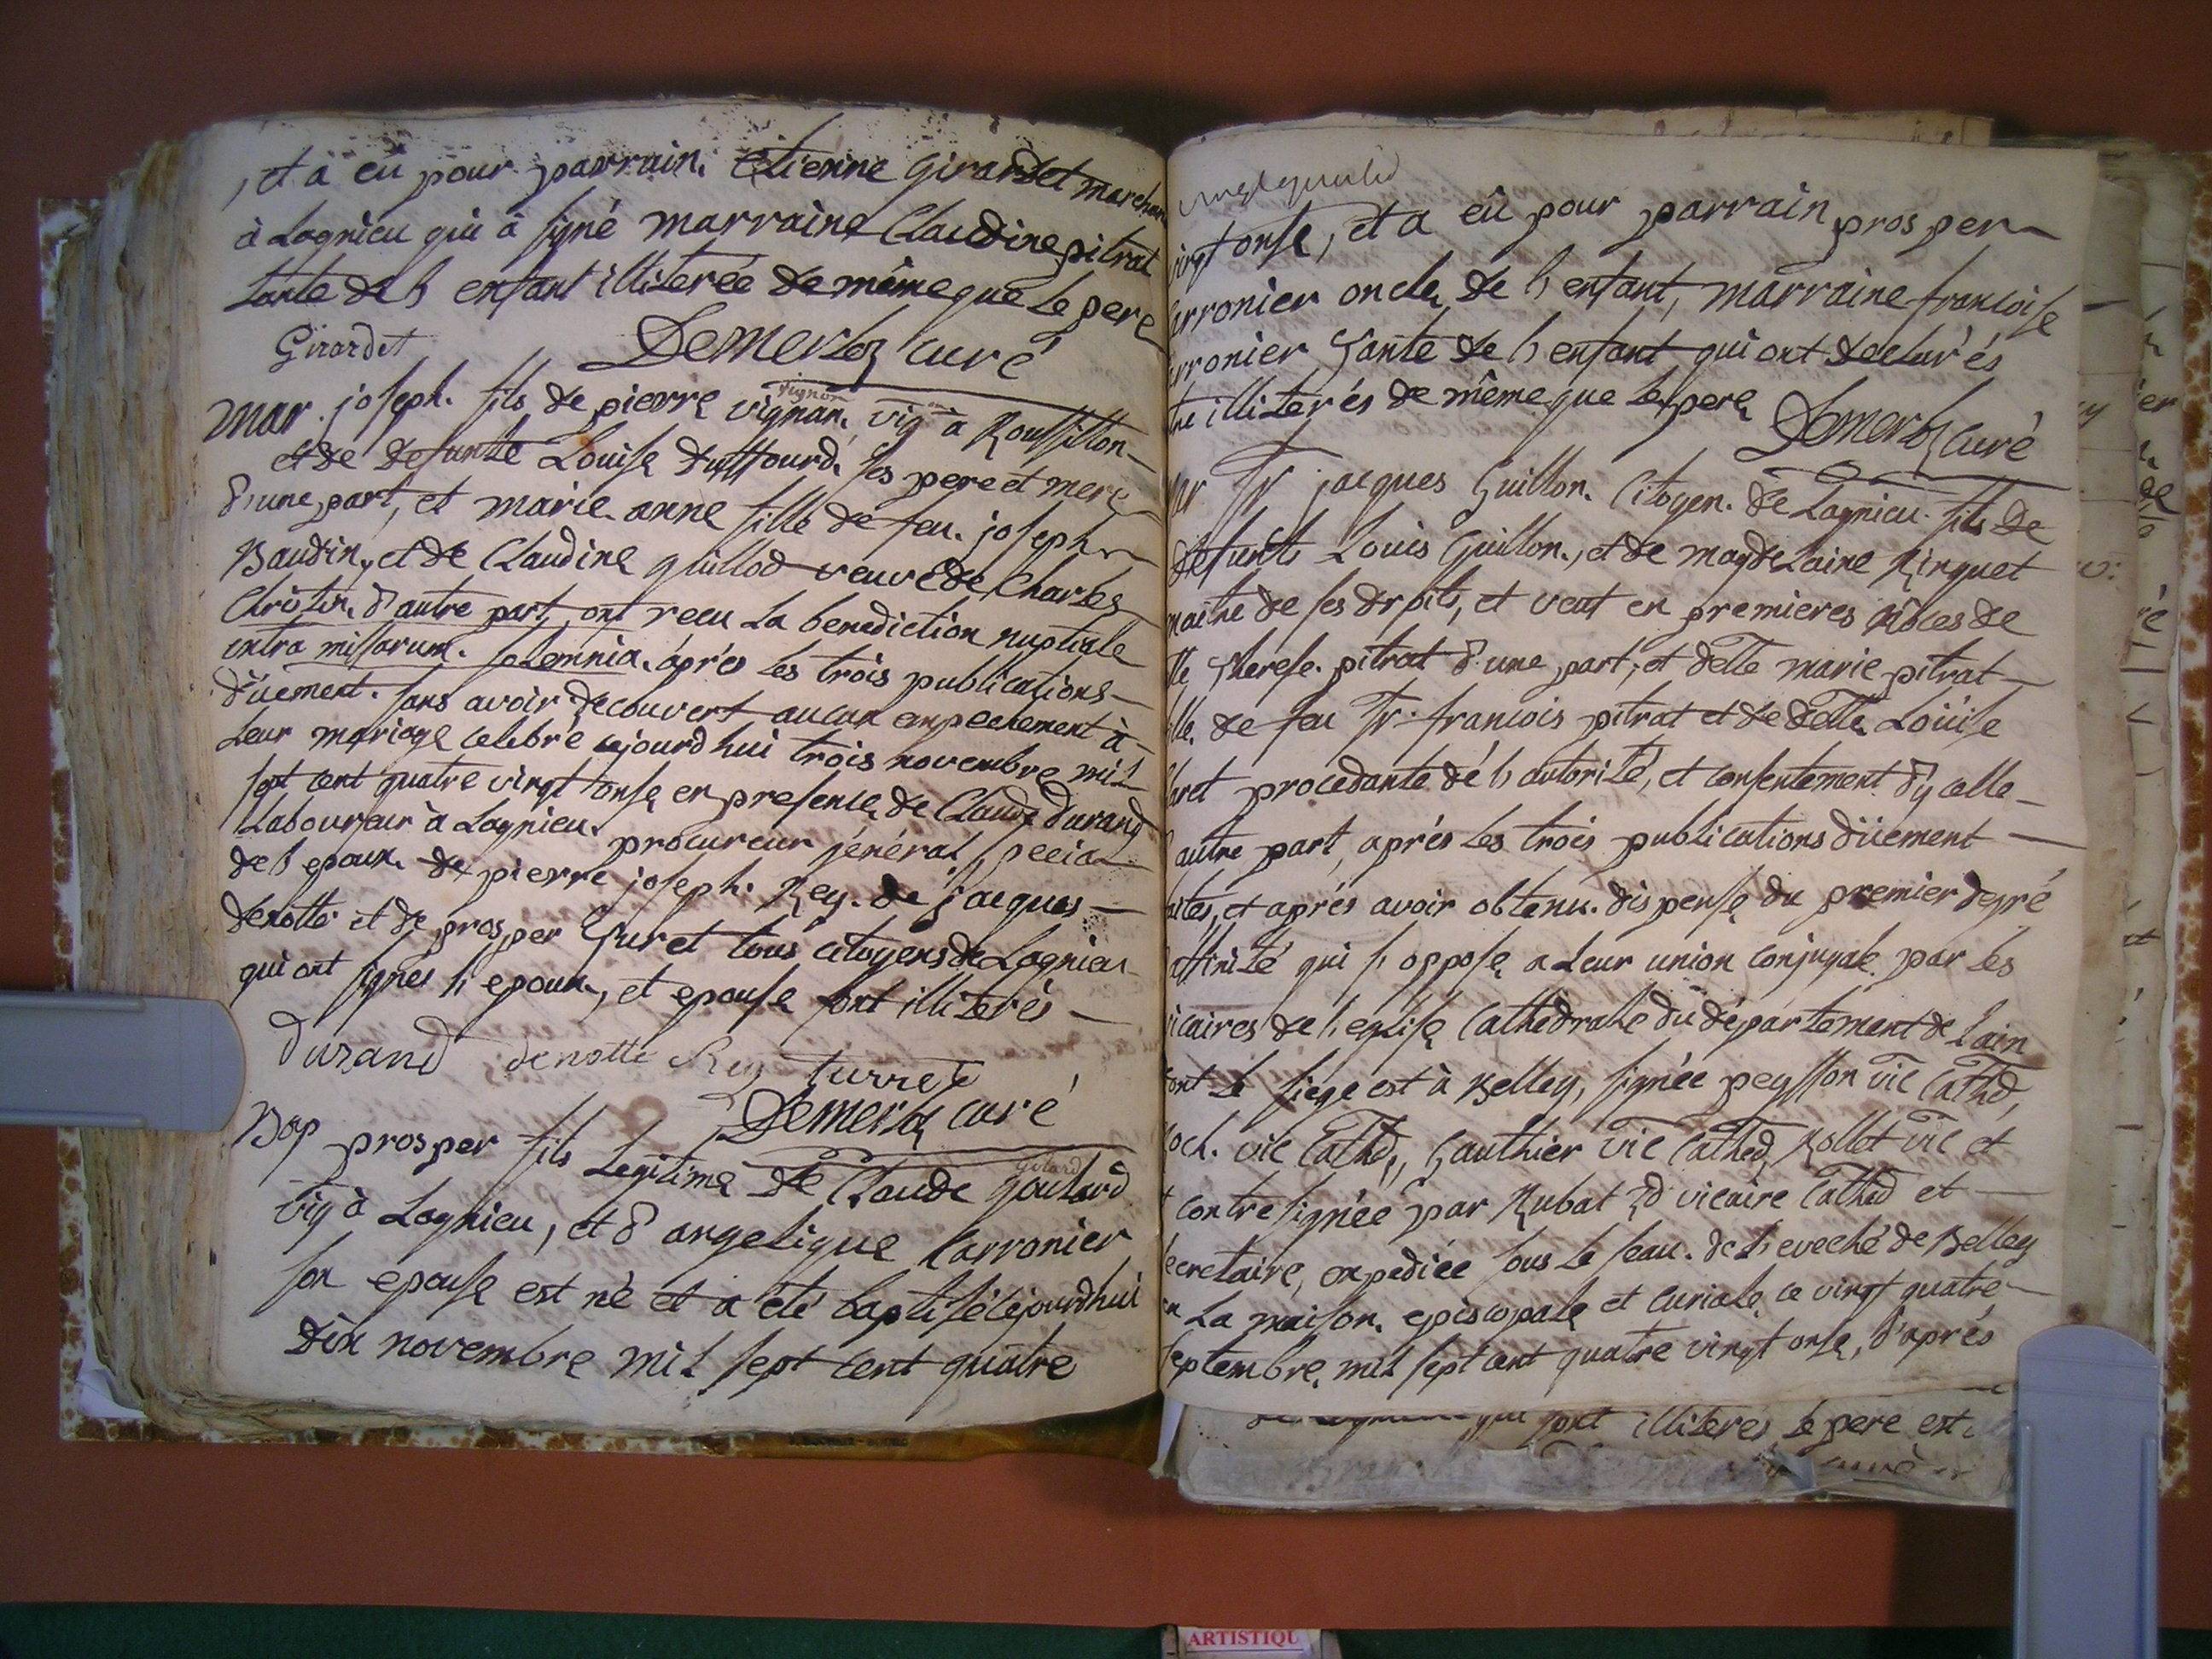 , et a eû pour parrain. etienne girardet marchan
à Lagnieu qui a signé marraine Claudine pitrat
tante de l'enfant illiterée de même que le pere
Girardet
Demerloz curé
mar. joseph. fils de pierre vignan, vig^n à Roussillon
vignon
et de defunte Louise duffourd. ses pere et mere
d'une part, et marie-anne fille de feu. joseph
Baudin, et de Claudine guillod veuve de Charles
Christin. d'autre part, ont recu la benediction nuptiale
intra missarum. solemnia. après les trois publications
düement. sans avoir decouvert aucun empechement à
leur mariage celebré cejourd'hui trois novembre mil
sept cent quatre vingt onse en presence de Claude durand
Laboureur à Lagnieu. procureur jénéral, special
de l'epoux. de pierre joseph. Rey. de jacques
denotte et de prosper Turet tous citoyens de Lagnieu
qui ont signés l'epoux, et epouse sont illiterés
Durand denotte Rey turret
Demerloz curé
Bap prosper fils Legitime de Claude goulard
gulard
vig à Lagnieu, et d'angelique Carronier
son epouse est né et a été baptisé cejourd'hui
dix novembre mil sept cent quatre
vingt onse, et a eû pour parrain prosper
arronier oncle de l'enfant, marraine francoise
arronier Tante de l'enfant qui ont declarés
tre illiterés de même que le pere
Demerloz curé
ar Sr jacques Guillon. Citoyen. de Lagnieu. fils de
defunts Louis Guillon., et de magdelaine Ringuet
maitre de ses droits, et veuf en premieres nôces de
lle Therese. pitrat d'une part, et delle marie pitrat
ille. de feu Sr. francois pitrat et de delle Loüise
aret procedante dé l'autorité, et consentement d'ycelle
autre part, aprés les trois publications düement
aites, et aprés avoir obtenu. dispense du premier degré
affinité qui s'oppose a leur union conjugale par les
icaires de l'eglise Cathedrale du département de Lain
ont le siege est à Belley, signée peysson vic Cathd,
och. vic Cathd,, Gauthier vic Cathed, Rollet vic et
contresignée par Rubat 2d vicaire Cathed et
ecretaire, expediée sous le seau. de l'eveché de Belley
en La maison. episcopale et curiale ce vingt quatre
eptembre. mil sept cent quatre vingt onse, d'aprés
qui sont illiteres le pere est